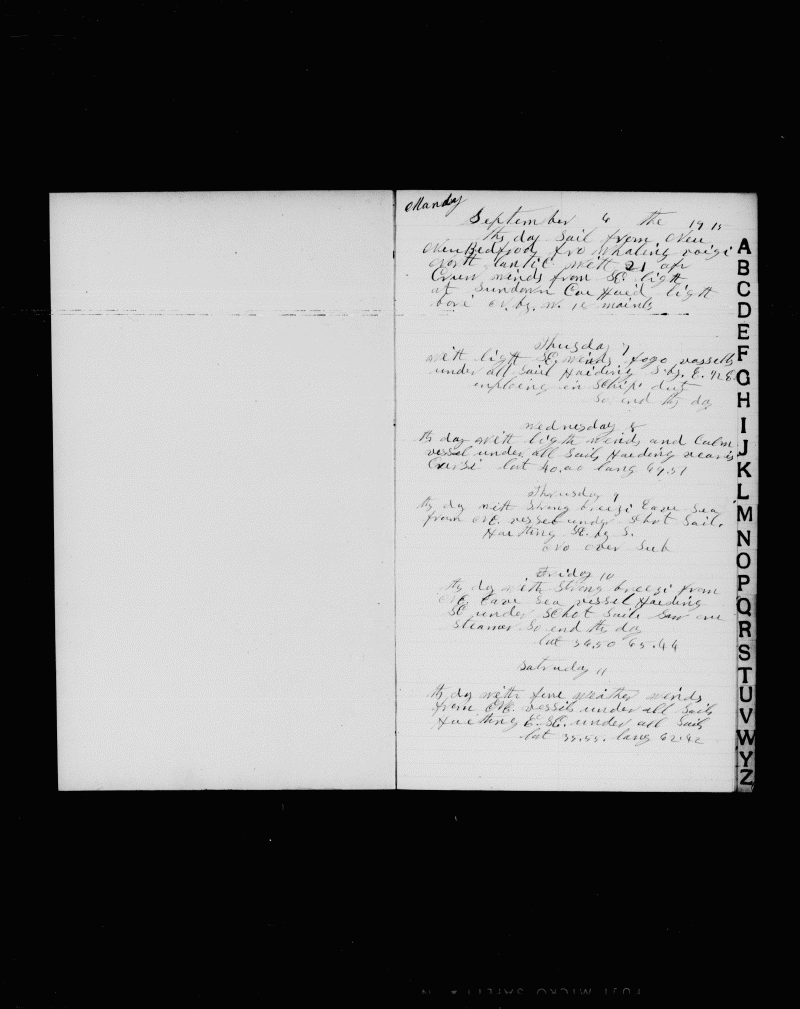 Manday
September 6 the 1915
thy day Sail from New
New Bedfrod fro Whaling voigi
North lantic with 21 ofr
Cruw winds from SE. light
at Sundown Cae Haid light
bori N. by. W. 12 mainls
Thusday 7
with light SE. winds fogo vassells
under all Sails Haiding S. by. E. 1/2 E.
imploing in Schips dut
So end thy day
Wednesday 8
thy day with ligth winds and Calm
vessel under all Sails Haeding
Cursi lat 40.00 lang 69.57
Thrusday 9
thy day with Strong breezi Eave Sea
from NE. vessel under Schot Sails
Haething SE. by S.
Friday 10
thy day with Strong breezi from
NE. Eave Sea vessel Haeding
SE under Schot Sails Saw one
Steamer So end thy day
lat 36.50 65.44
Satruday 11
thy day with fine weather winds
from NE. vessils under all Sails
Haething E. SE. under all Sails
lat 35.55. lang 62.42
A
B
C
D
E
F
G
H
I
J
K
L
M
N
O
P
Q
R
S
T
U
V
W
Y
Z